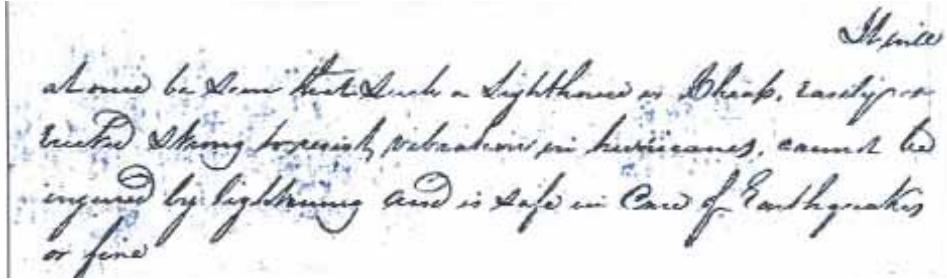 It will
at once be seen that such a Lighthouse is Cheap, easily
Erected Strong to resist vibration in hurricanes, cannot be
injured by lightning and is safe in Case of Earthquakes
or fire